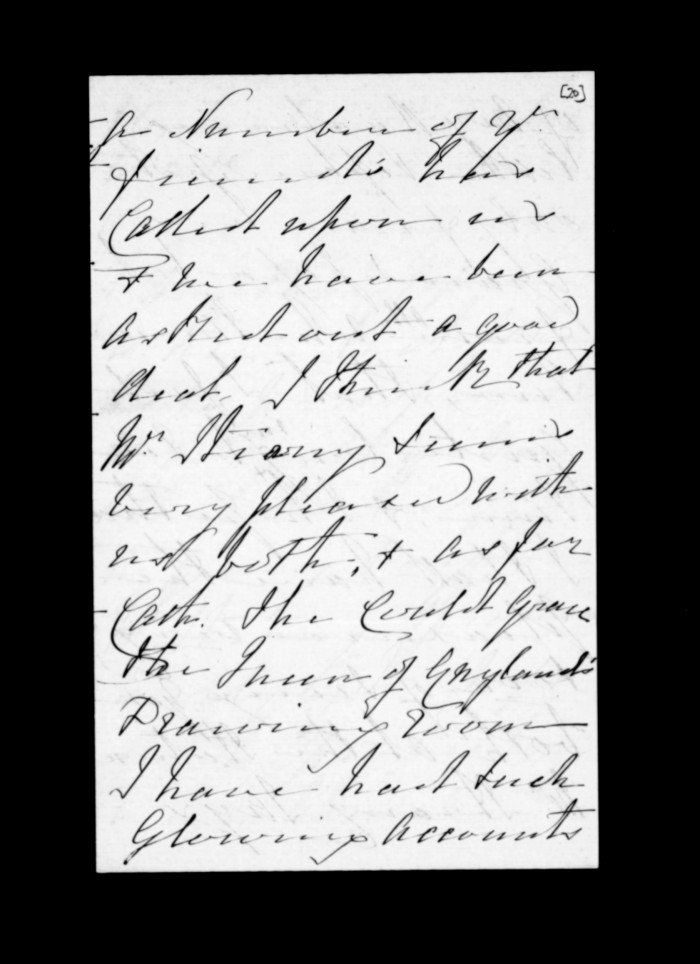 [20]
A Number of Yr
friends has
Called upon us
& we have been
asked out a good
deal, I think that
Mr. Strang seems
very pleased with
us both, & as for
Cath. She Could Grace
the Queen of England's
Drawing room
I have had such
Glowing Accounts